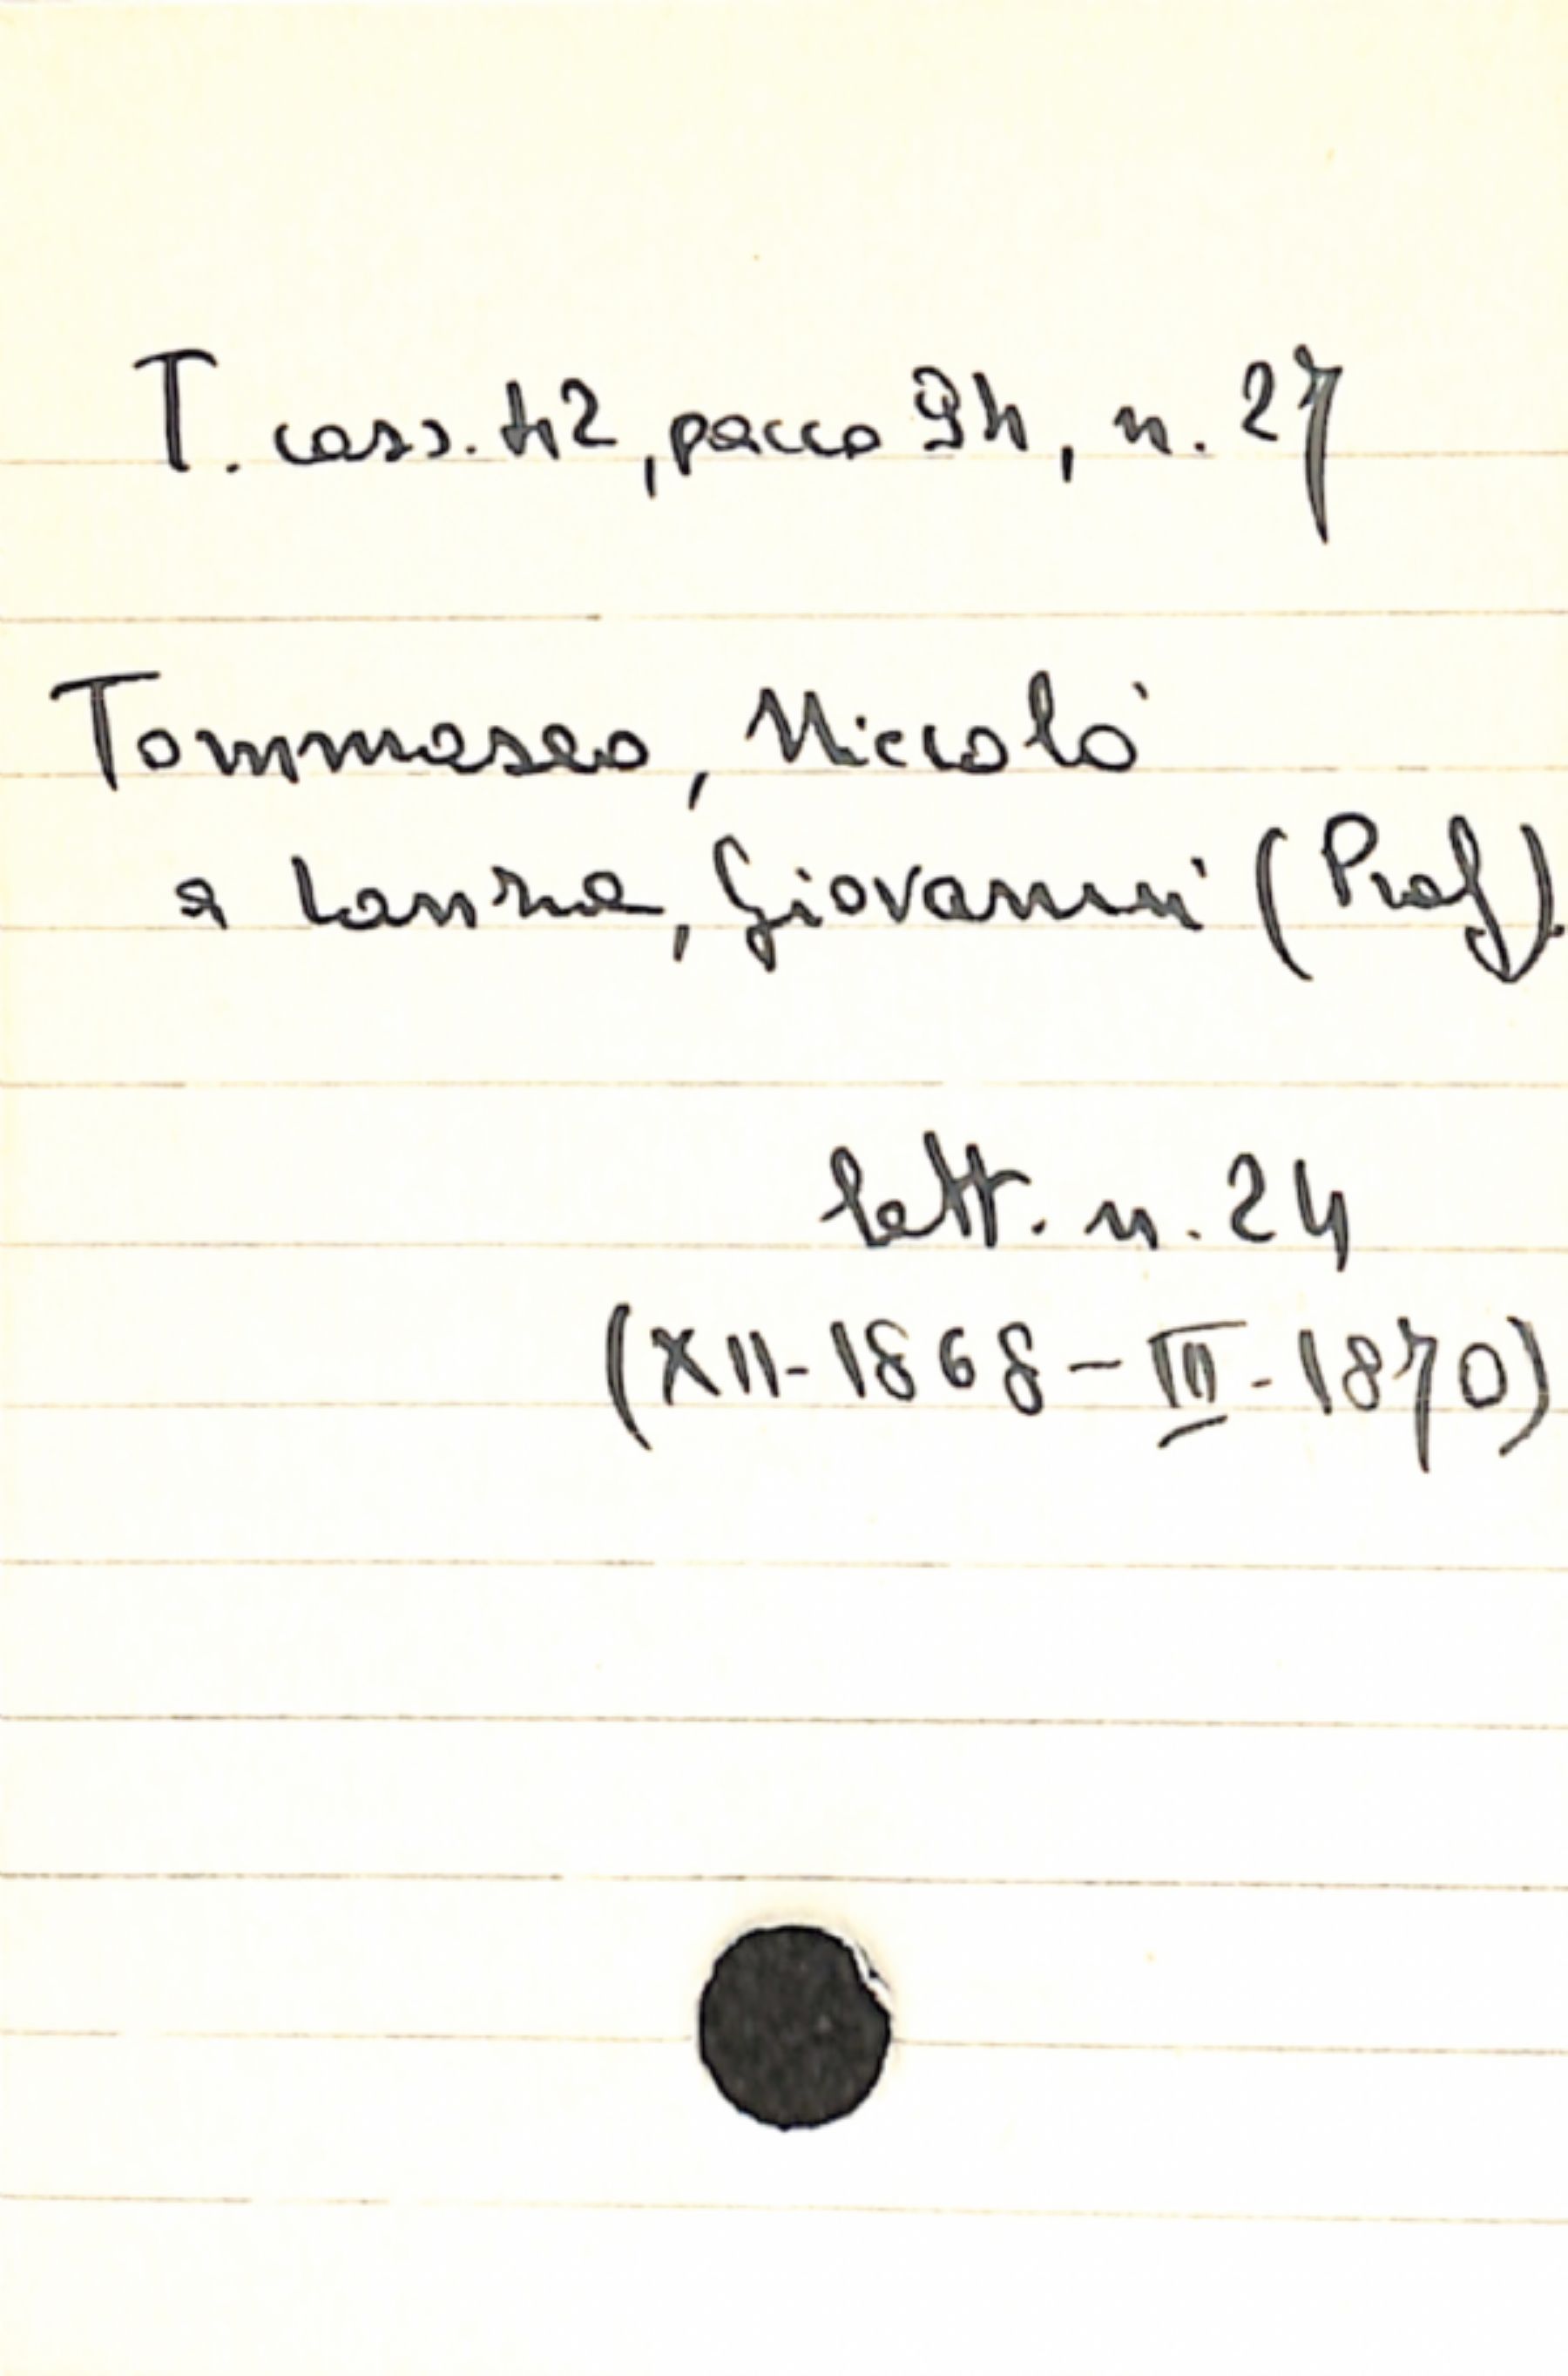 T. cass. 42, pacco 94, n. 27
Tommaseo, Niccolò
a Lanza, Giovanni (Prof).
lett. n. 24
(XII-1868 - III - 1870)